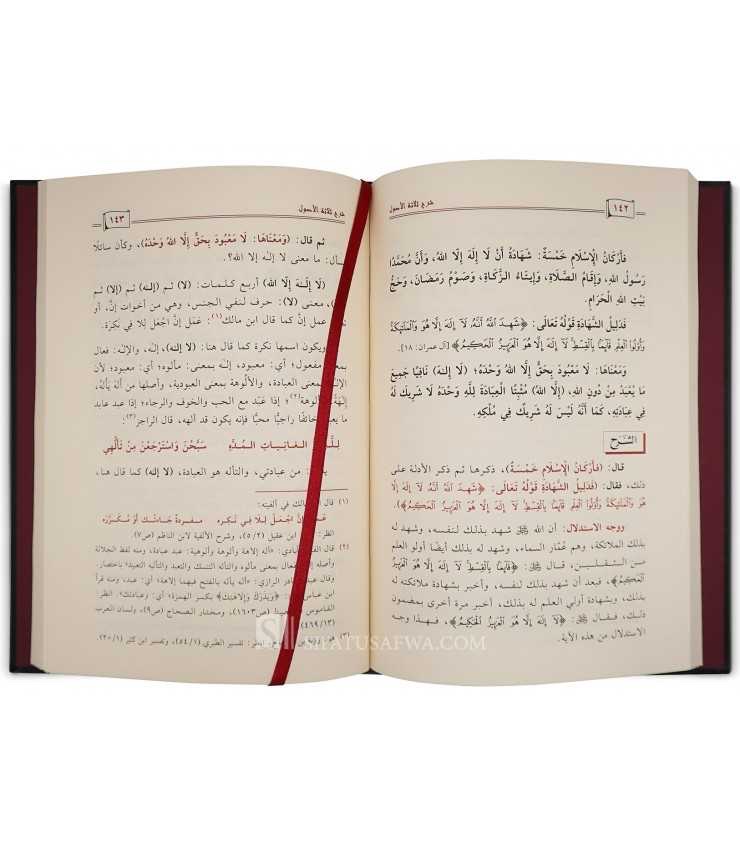 ١٤٢
شرح ثلاثة الأصول
فَأَرْكَانُ الْإِسْلَامِ خَمْسَةٌ: شَهَادَةُ أَنْ لَا إِلَهَ إِلَّا اللهُ، وَأَنَّ مُحَمَّدًا
رَسُولُ اللهِ، وَإِقَامُ الصَّلَاةِ، وَإِيتَاءُ الزَّكَاةِ، وَصَوْمُ رَمَضَانَ، وَحَجُّ
بَيْتِ اللهِ الْحَرَامِ.
فَدَلِيلُ الشَّهَادَةِ قَوْلُهُ تَعَالَى: ﴿شَهِدَ اللَّهُ أَنَّهُ لَا إِلَهَ إِلَّا هُوَ وَالْمَلَائِكَةُ
وَأُولُوا الْعِلْمِ قَائِمًا بِالْقِسْطِ لَا إِلَهَ إِلَّا هُوَ الْعَزِيزُ الْحَكِيمُ﴾ [آل عمران: ١٨].
وَمَعْنَاهَا: لَا مَعْبُودَ بِحَقٍّ إِلَّا اللهُ وَحْدَهُ؛ (لَا إِلَهَ) نَافِيًا جَمِيعَ
مَا يُعْبَدُ مِنْ دُونِ اللهِ، (إِلَّا اللهُ) مُثْبِتًا الْعِبَادَةَ لِلَّهِ وَحْدَهُ لَا شَرِيكَ لَهُ
فِي عِبَادَتِهِ، كَمَا أَنَّهُ لَيْسَ لَهُ شَرِيكٌ فِي مُلْكِهِ.
الشرح
قال: (فَأَرْكَانُ الْإِسْلَامِ خَمْسَةٌ)، ذكرها ثم ذكر الأدلة على
ذلك، فقال: (فَدَلِيلُ الشَّهَادَةِ قَوْلُهُ تَعَالَى: ﴿شَهِدَ اللَّهُ أَنَّهُ لَا إِلَهَ إِلَّا
هُوَ وَالْمَلَائِكَةُ وَأُولُوا الْعِلْمِ قَائِمًا بِالْقِسْطِ لَا إِلَهَ إِلَّا هُوَ الْعَزِيزُ الْحَكِيمُ﴾).
ووجه الاستدلال: أن الله ﷻ شهد بذلك لنفسه، وشهد له
بذلك الملائكة، وهم عُمَّار السماء، وشهد له بذلك أيضًا أولو العلم
من الثقلين، قال ﷻ: ﴿قَائِمًا بِالْقِسْطِ لَا إِلَهَ إِلَّا هُوَ الْعَزِيزُ
الْحَكِيمُ﴾، فبعد أن شهد بذلك لنفسه، وأخبر بشهادة ملائكته
بذلك وبشهادة أولي العلم له بذلك، أخبر مرة أخرى بمضمون
ذلك، فقال: ﴿لَا إِلَهَ إِلَّا هُوَ الْعَزِيزُ الْحَكِيمُ﴾، فهذا وجه
الاستدلال من هذه الآية.
شرح ثلاثة الأصول
١٤٣
ثم قال: (وَمَعْنَاهَا: لَا مَعْبُودَ بِحَقٍّ إِلَّا اللهُ وَحْدَهُ)، وكأن سائلًا
سأل: ما معنى لا إله إلا الله؟.
(لَا إِلَهَ إِلَّا الله) أربع كلمات: (لا) ثم (إله) ثم (إلا) ثم
معنى (لا): حرف لنفي الجنس، وهي من أخوات إنَّ، أو
عمل إنَّ كما قال ابن مالك(١): عَمَلَ إِنَّ اجْعَلْ لِلَا فِي نَكِرَة.
ويكون اسمها نكرة كما قال هنا: (لا إله)، إله، والإله: فعال
بمعنى مفعول؛ أي: معبود، إله بمعنى: مألوه؛ أي: معبود،
الإله بمعنى العبادة، والألوهة بمعنى العبودية، وأصلها من أَلَه يَأْلَهُ،
إِلَهَةً وألوهة(٢)؛ إذا عَبَد مع الحب والخوف والرجاء؛ إذا عبد عابد
ما يعبد خائفًا راجيًا محبًّا فإنه يكون قد ألهه، قال الراجز(٣):
لِلَّهِ الْغَانِيَاتِ الْمُدَّهِ سَبَّحْنَ وَاسْتَرْجَعْنَ مِنْ تَأَلُّهِي
من عبادتي، والتأله هو العبادة، (لا إله) كما قال هنا،
(١) قال مالك في ألفيته:
عَمَلَ إِنَّ اجْعَلْ لِلَا فِي نَكِرَه مُفْرَدَةً جَاءَتْكَ أَوْ مُكَرَّرَه
انظر: ابن عقيل (٥/٢)، وشرح الألفية لابن الناظم (ص٧)
(٢) قال آبادي: «أله إلاهة وألوهة وألوهية: عبد عبادة، ومنه لفظ الجلالة
وأصله إله فعال بمعنى مألوه والتأله التنسك والتعبد والتأليه التعبيد» باختصار.
وقال الرازي: «أله يأله بالفتح فيهما إلاهة) أي: عبد، ومنه قرأ
ابن عباس: (وَيَذَرَكَ وَإِلَاهَتَكَ) بكسر الهمزة) أي: عبادتك». انظر:
القاموس (ص١٦٠٣)، ومختار الصحاح (ص٩)، ولسان العرب
(٤٦٩/١٣)
انظر: تفسير الطبري (٥٤/١)، وتفسير ابن كثير (٢٠/١)
SIFATUSAFWA.COM